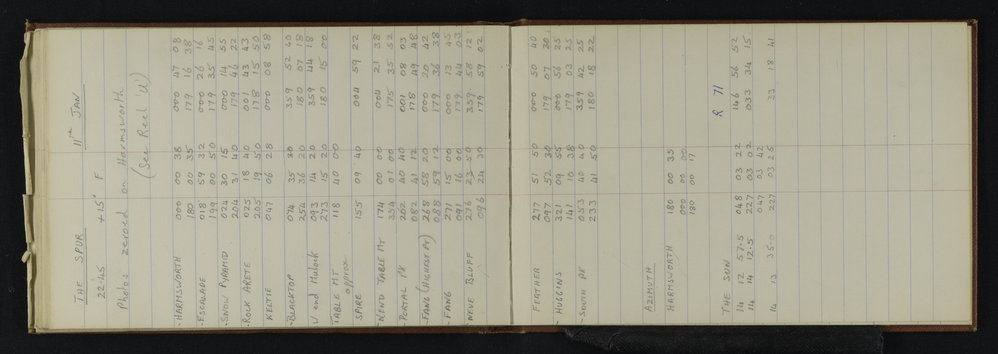 THE SPUR 11TH JAN
22.45 +15° F
Photos zeroed on Harmsworth
(See Reel U)
-HARMSWORTH 000 00 38 000 47 08
180 00 35 179 16 38
-ESCALADE 018 59 32 000 26 16
199 00 50 179 35 45
-SNOW PYRAMID 024 30 15 000 14 55
204 31 40 179 46 22
-ROCK ARETE 025 18 40 001 43 43
205 19 50 178 15 50
KELTIE 047 06 28 000 08 58
-BLACKTOP 074 35 30 359 52 40
254 36 20 180 07 18
W end Mulock 093 14 20 359 44 18
273 15 20 180 15 00
TABLE MT 118 40 00
approx
SPIRE 155 09 40 004 59 22
N END TABLE MT 174 00 00 004 21 38
354 01 00 175 35 52
-PORTAL PK 262 40 40 001 08 03
082 41 12 178 49 48
-FANG (HIGHEST PT) 268 58 20 000 20 42
088 59 12 179 36 38
-FANG 271 15 00 000 13 45
091 16 00 179 44 03
-NEVE BLUFF 276 23 50 359 58 12
096 24 30 179 59 02
FEATHER 277 51 50 000 50 40
097 52 30 179 07 20
-HUGGINS 321 09 55 000 56 25
141 10 38 179 03 25
-SOUTH PK 053 40 40 359 42 25
233 41 50 180 18 22
AZIMUTH
HARMSWORTH 180 00 35
000 00 00
180 00 17
R 71
THE SUN
14 12 57.5 048 03 22 146 56 52
14 14 12.5 227 03 02 033 34 15
047 03 42
14 13 35.0 227 03 25 33 18 41